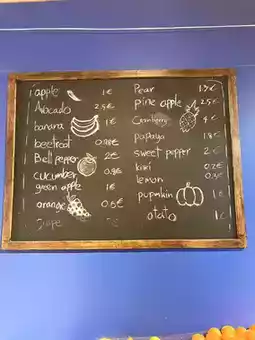 apple 1€
Avocado 2.5€
banana 1€
beetroot
Bell pepper 2€
cucumber 0.8€
green apple 1€
orange 0.6€
grape
Pear
pine apple 2.5€
Cranberry 4€
papaya
sweet pepper 2€
kiwi 0.2€
lemon
pupmkin 1€
otato 1€